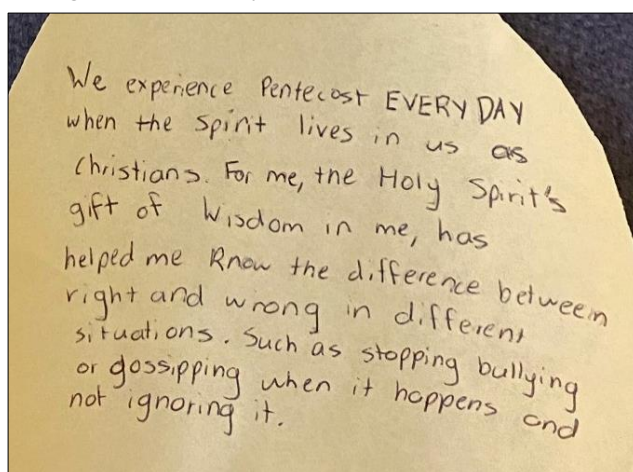 We experience Pentecost EVERY DAY
when the Spirit lives in us as
Christians. For me, the Holy Spirit's
gift of Wisdom in me, has
helped me know the difference between
right and wrong in different
situations. Such as stopping bullying
or gossipping when it happens and
not ignoring it.